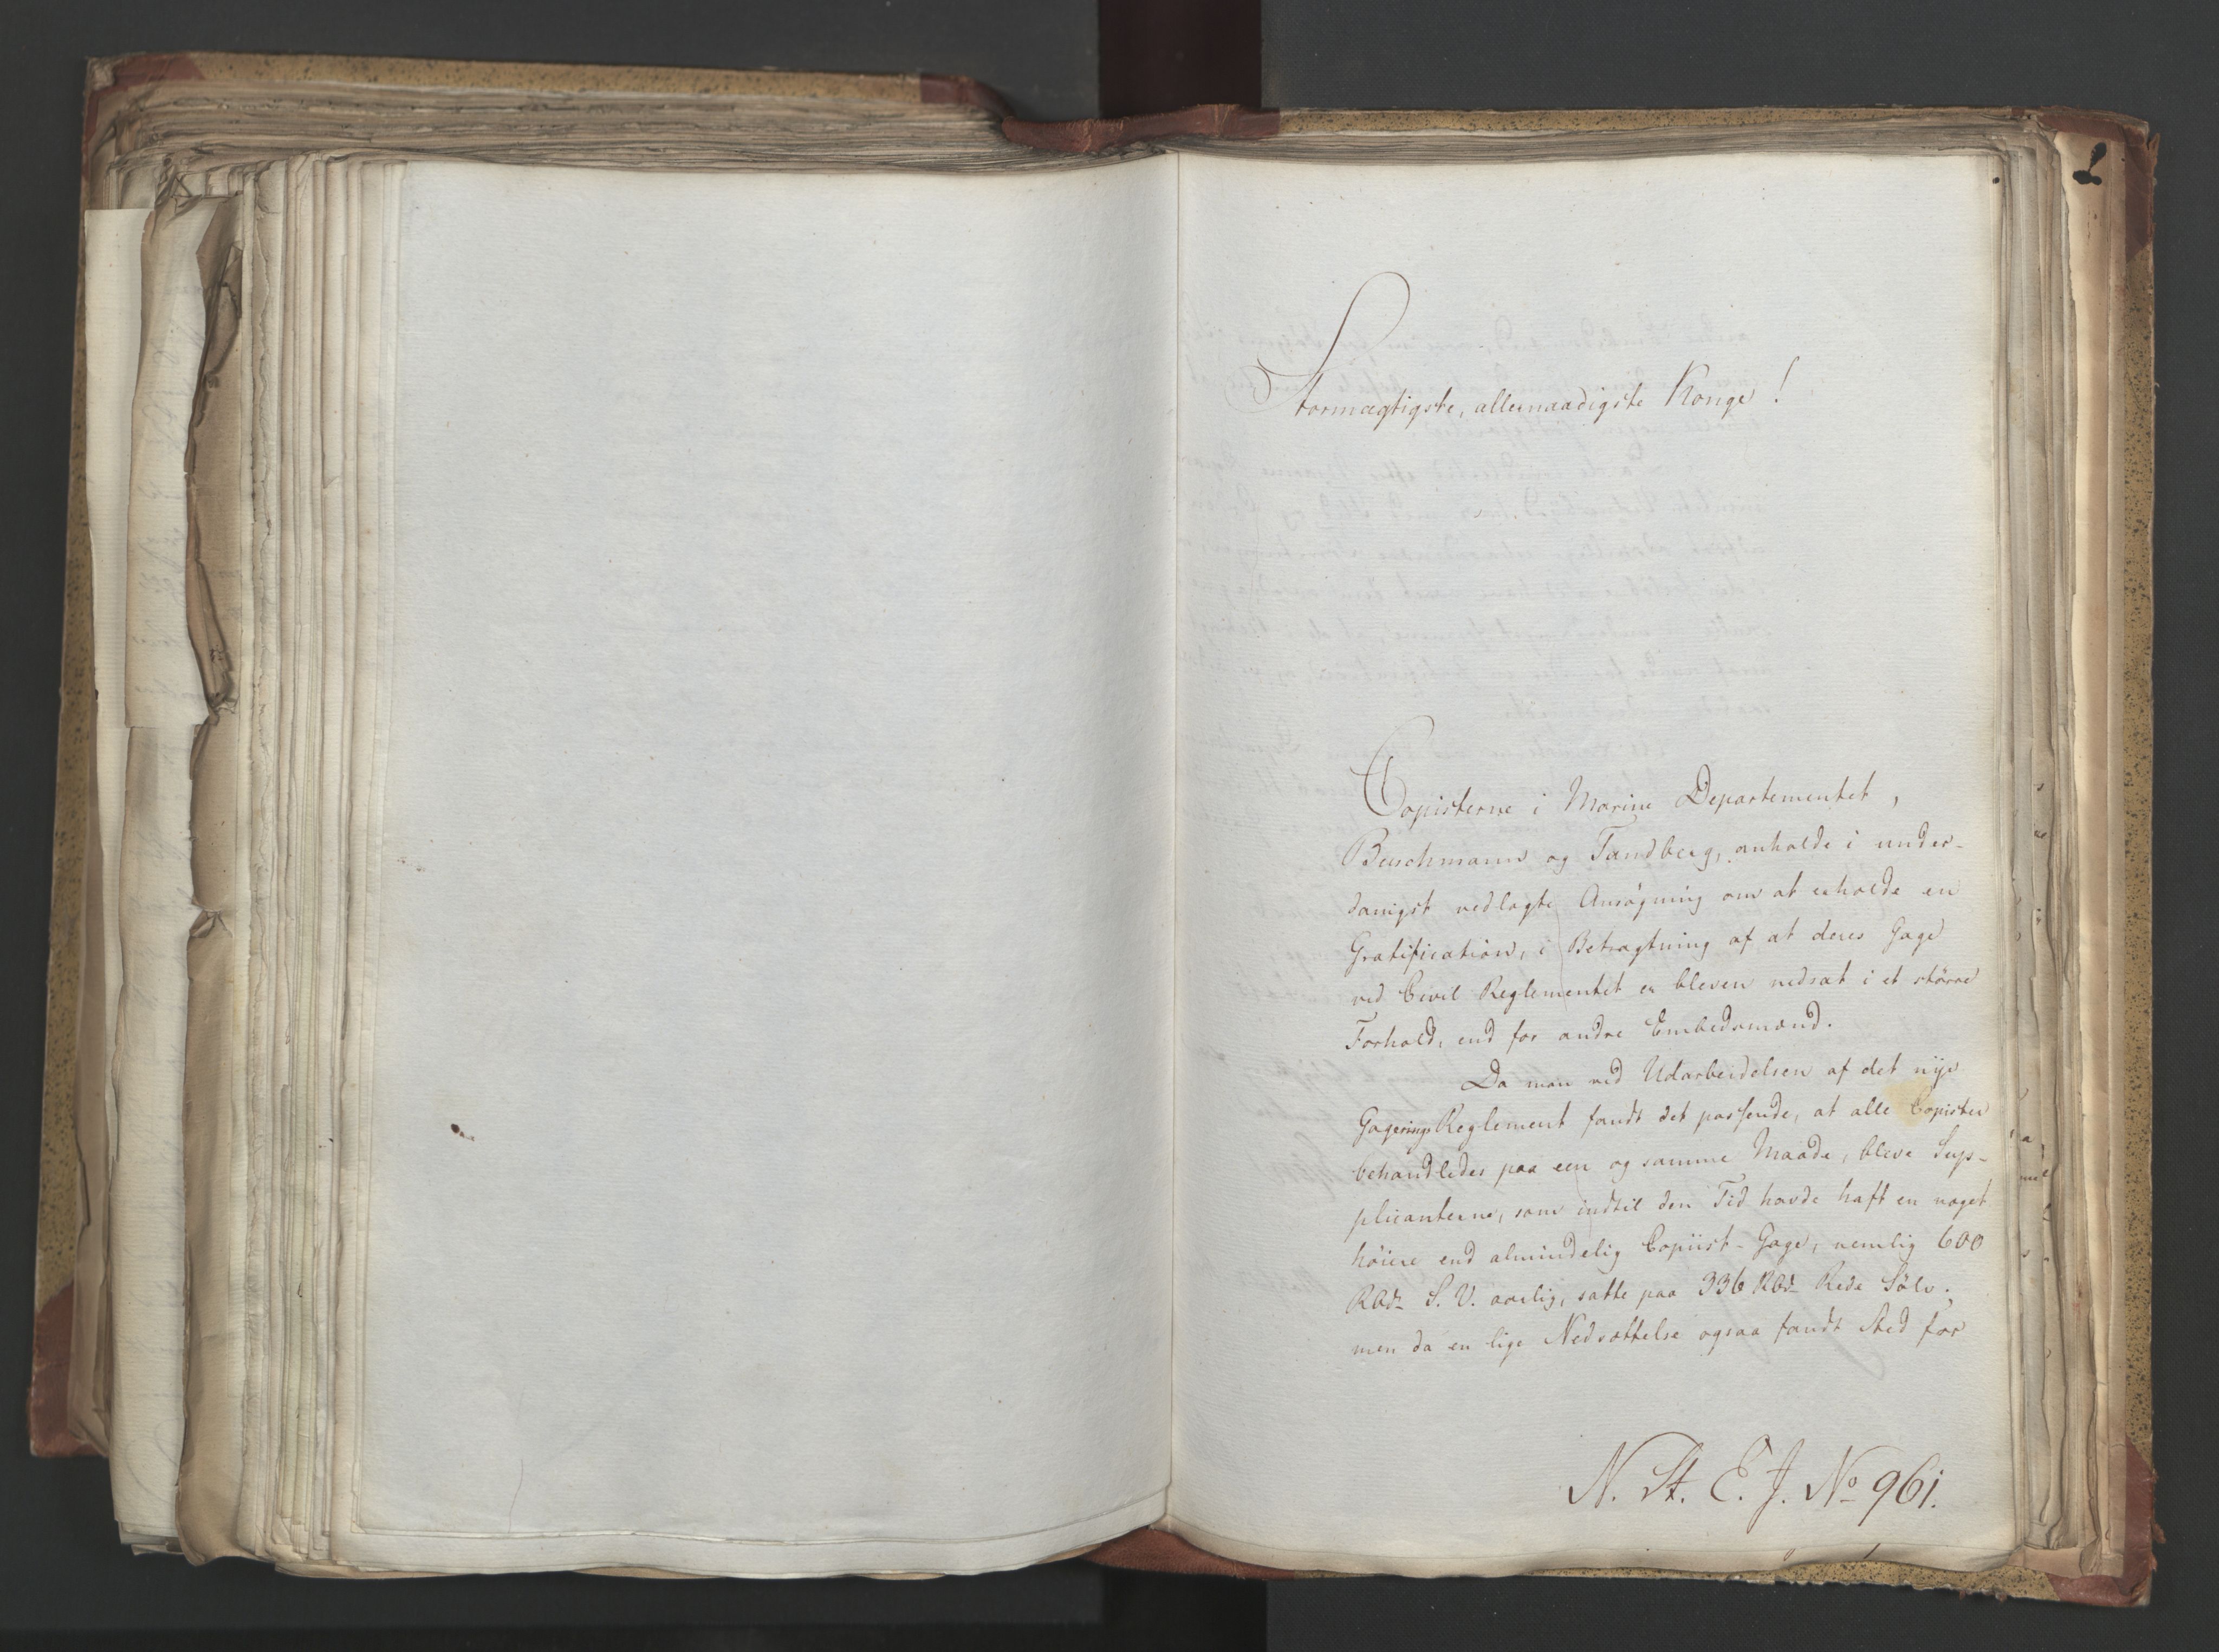 Stormægtigste, allernaadigste Konge!
Copisterne i Marine Departementet,
Buschmann og Tandberg, anholde i under-
danigst vedlagte Ansøgning om at erholde en
Gratification, i Betragtning af at deres Gage
ved Civil Reglementet er bleven nedsat i et større
Forhold, end for andre Embedsmænd.
Da man ved Udarbeidelsen af det nye
Gagerings Reglement fandt det passende, at alle Copister
behandledes paa een og samme Maade, bleve Sup-
plicanterne, som indtil den Tid havde haft en noget
høiere end almindelig Copiist-Gage, nemlig 600
Rbd. S. V. aarlig, satte paa 336 Rbd. Rede Sølv.
men da en lige Nedsættelse ogsaa fandt Sted for
N. St. E. J. No 961.